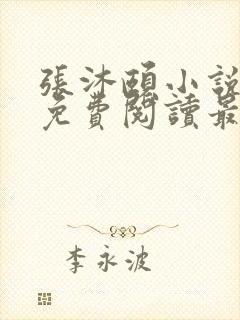 張沐頤小說
免費閱讀最
李永波